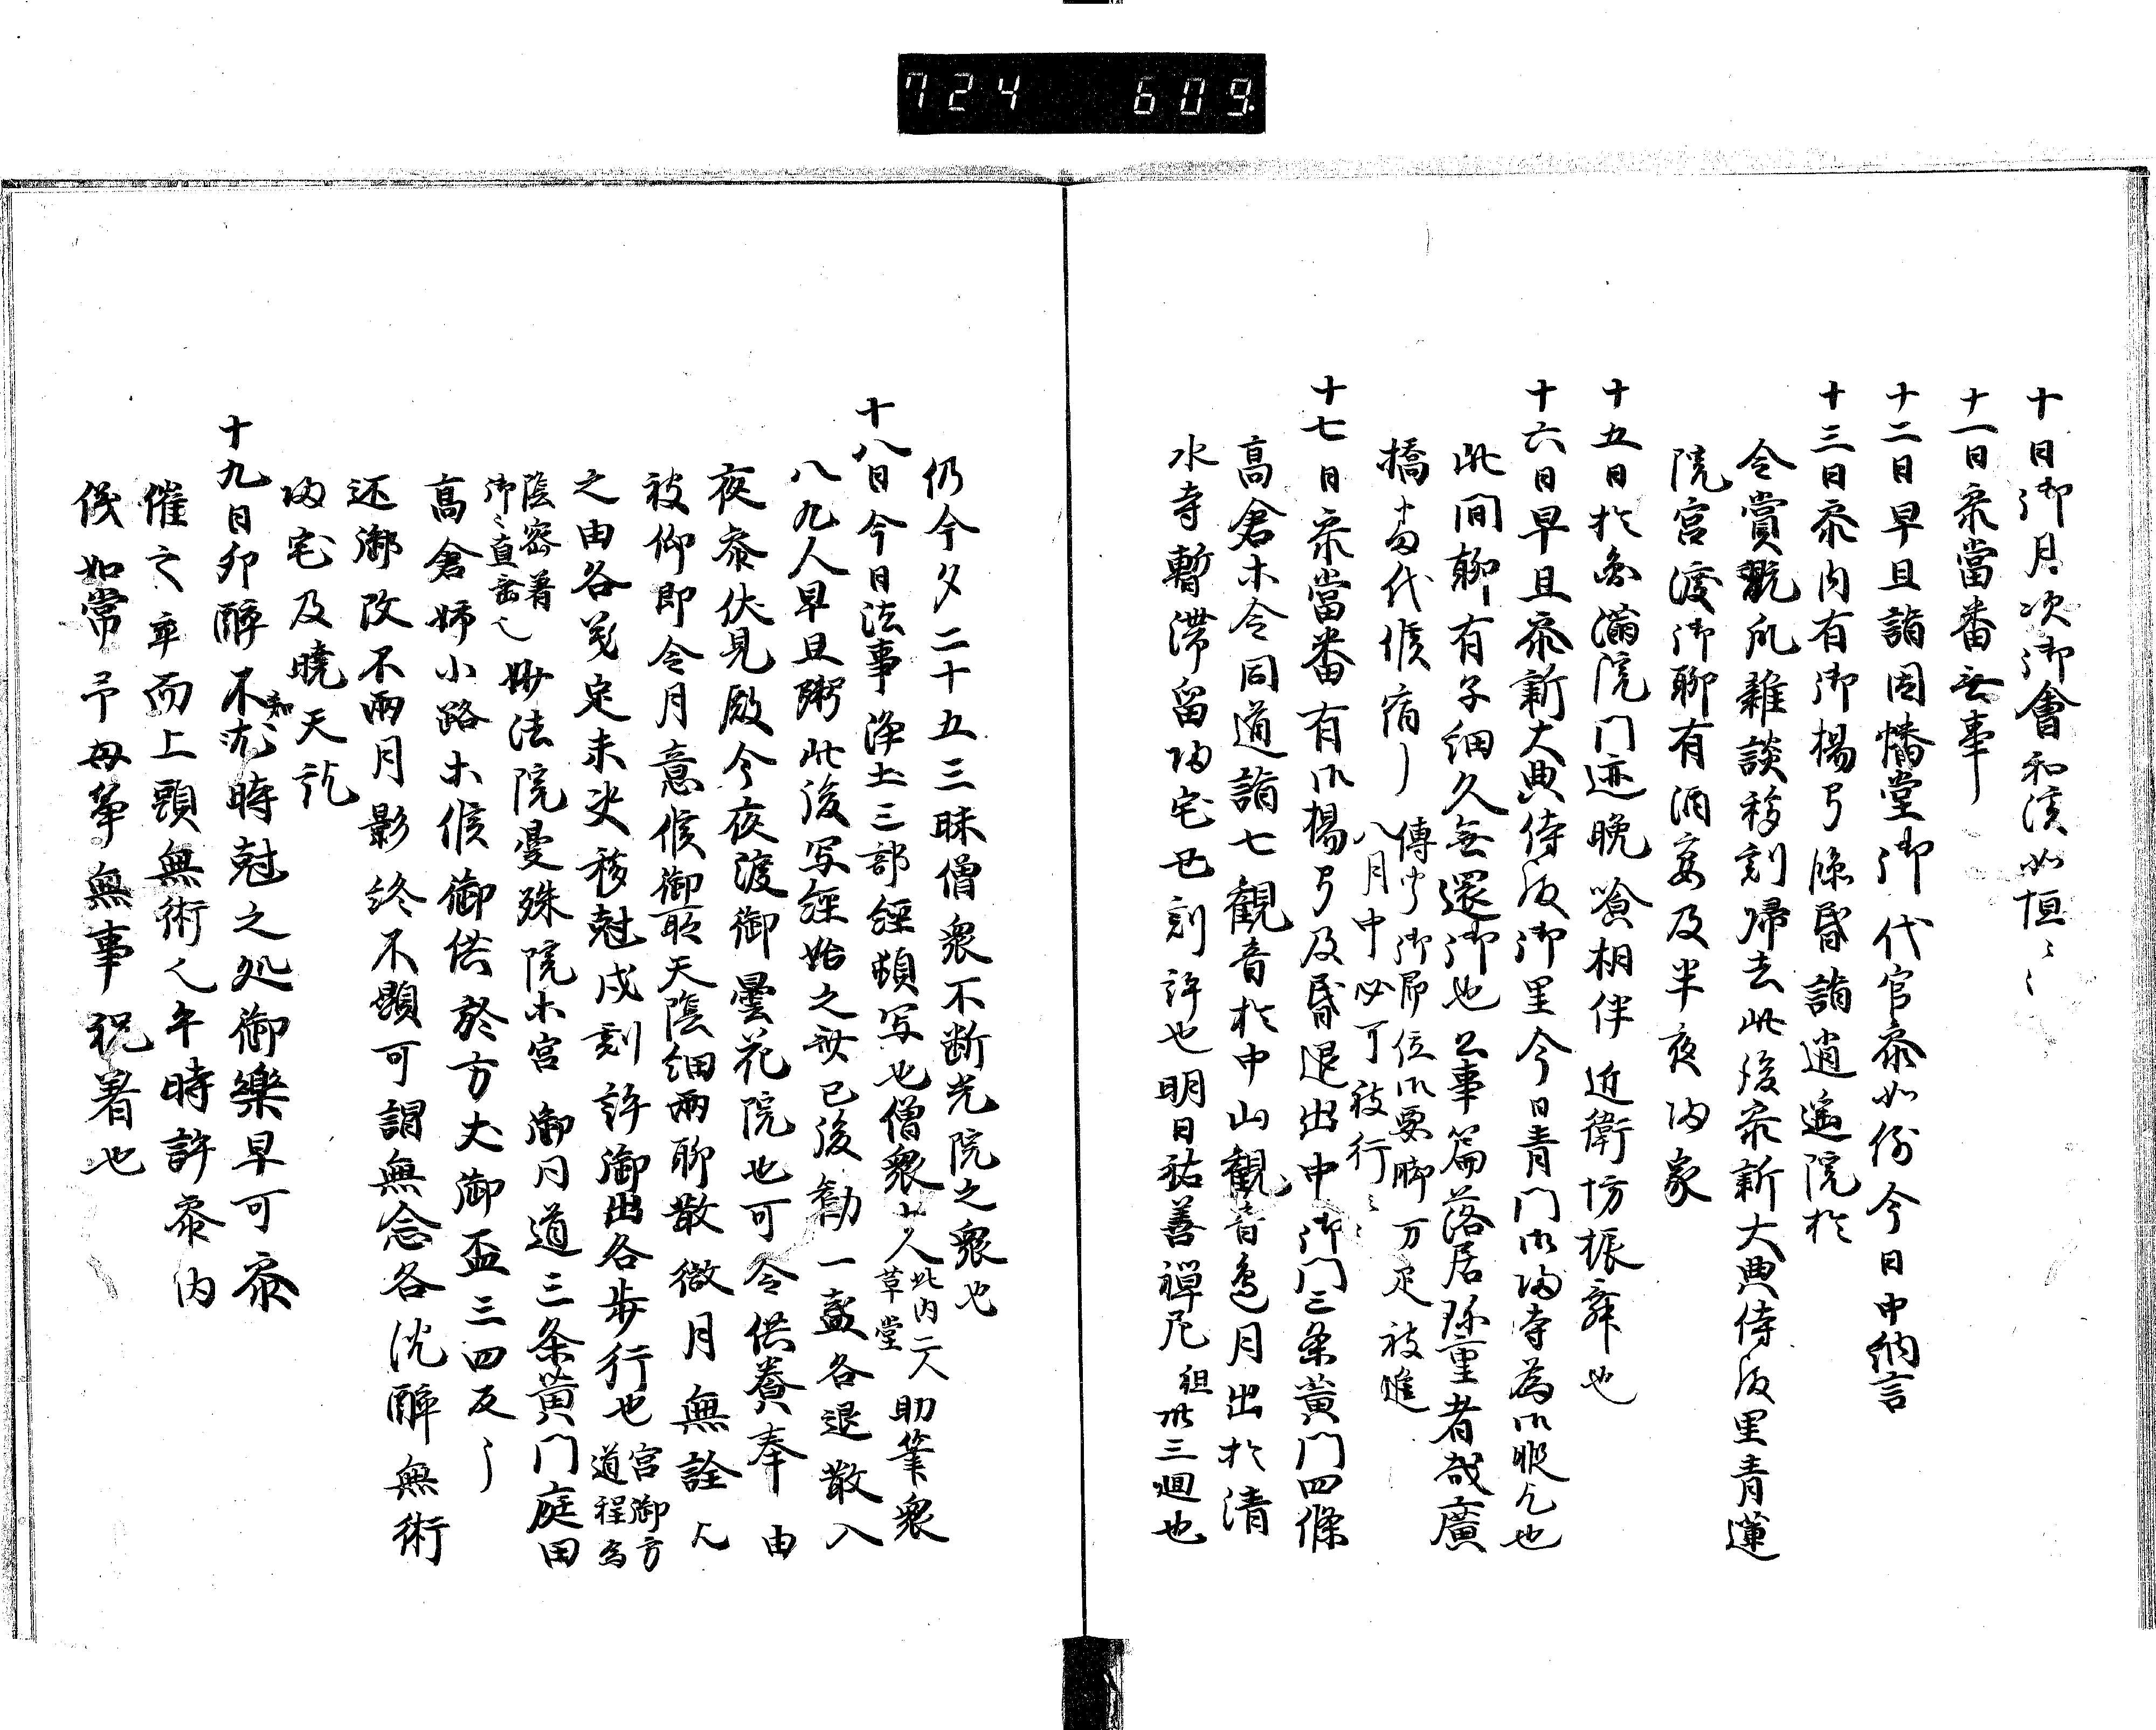 724 609.
十日御月次御會和漢如恒ミミ
十一日参當番無事
十二日早旦詣因幡堂御代官参如例今日中納言
十三日参内有御楊弓臨昏詣逍遥院於
令賞翫瓜雜談移刻帰去此後参新大典侍殿里青蓮
院宮渡御聊有酒宴及半夜帰家
十五日於圓滿院门迹晩飡相伴近衛坊振舞也
十六日早旦参新大典侍殿御里今日青门御帰寺為御暇乞也
此间聊有子細久無還御也公事篇落居珎重者哉廣
橋代候宿
傳聞御即位御要脚万疋被進
八月中必可被行ミミ
十七日参當番有御楊弓及昏退出中御门三条黄门四條
高倉木令同道詣七観音於中山観音邊月出於清
水寺暫滞留帰宅丑刻許也明日祐善禅尼祖母三廻也
仍今夕二十五三昧僧衆不断光院之衆也
十八日今日法事浄土三部經頓写也僧衆廿人
此内二人
草堂
助筆衆
八九人早旦粥此後写經始之申已後勧一盞各退散入
夜参伏見殿今夜渡御曇花院也可令供奉由
被仰即令月意候御取天陰細雨聊散微月無詮
之由各儀定未決移尅戌刻許御出各歩行也
宮御方
道程為
陰密着
御直垂也
妙法院曼殊院木宮御同道三条黄门庭田
高倉姉小路木候御供於方丈御盃三四反
还御改不雨月影終不顕可謂無念各沈醉無術
帰宅及暁天訖
十九日卯醉不知時尅之処御樂早可参
催之率而上頭無術午時許参内
儀如常予毎事無事祝着也